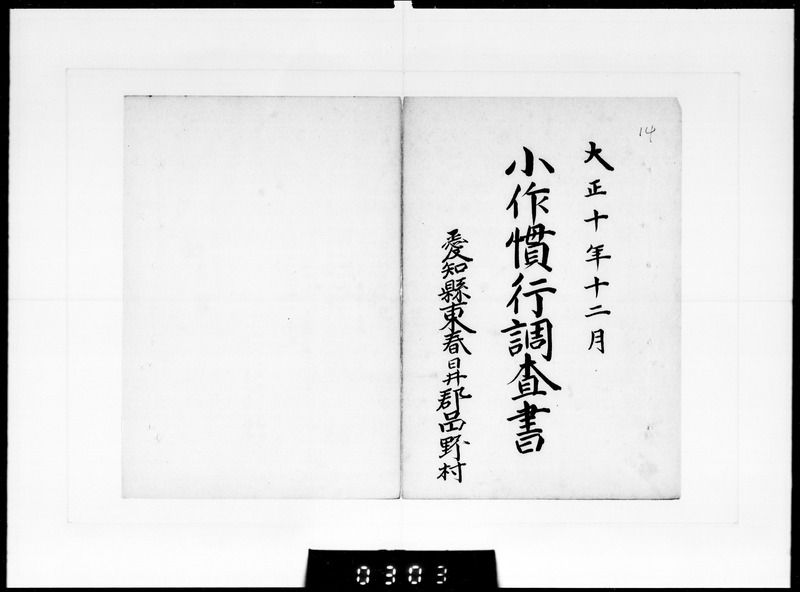 14
大正十年十二月
小作慣行調査書
愛知縣東春日井郡品野村
0303